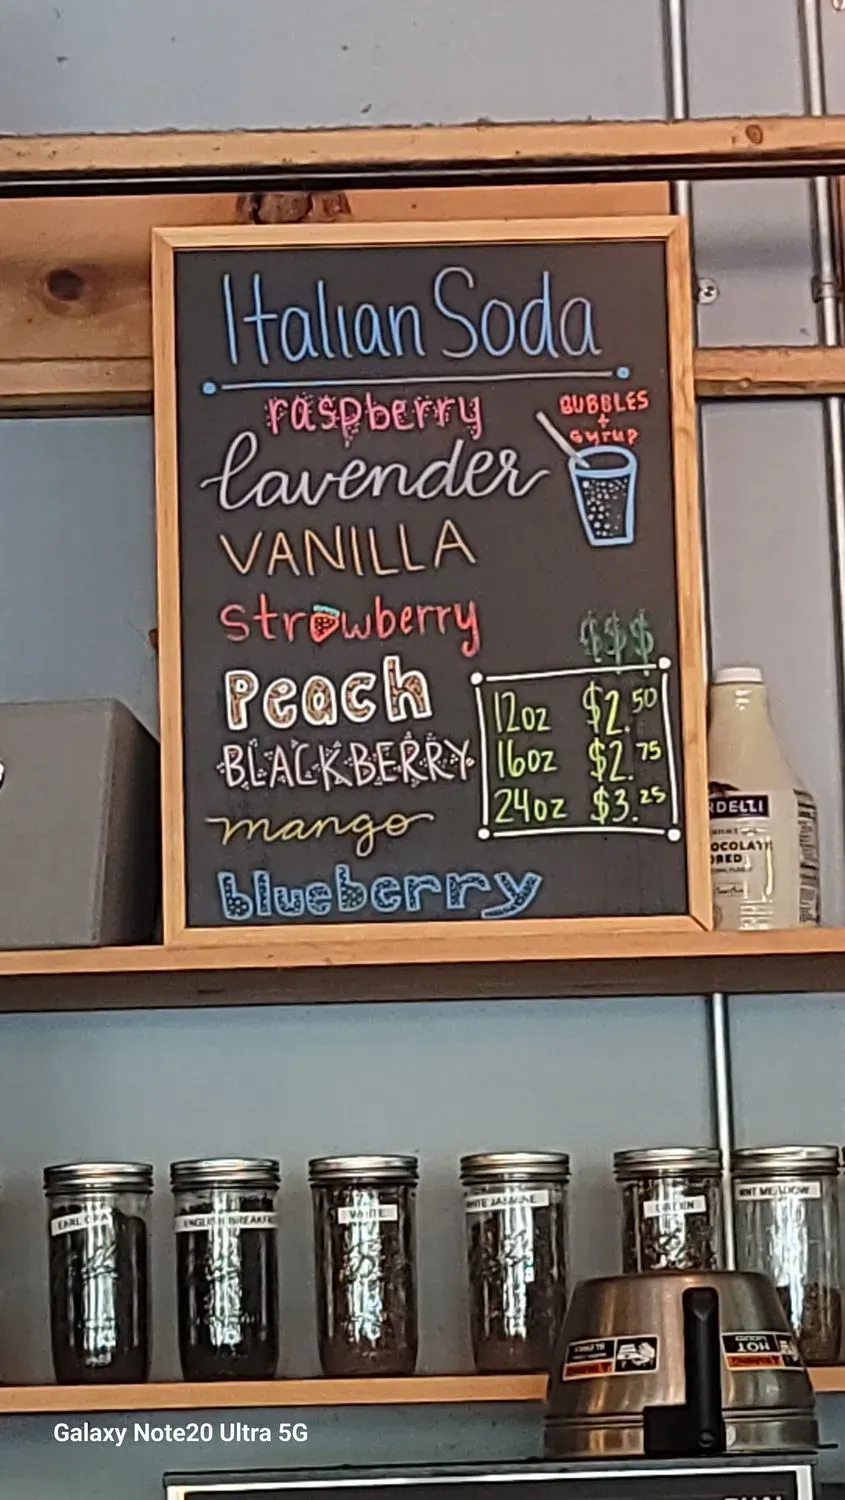 Italian Soda
raspberry
BUBBLES
+
syrup
lavender
VANILLA
strawberry
$$$
Peach
12oz $2.50
BLACKBERRY
16oz $2.75
24oz $3.25
mango
blueberry
RDELLI
OCOLATE
ORED
EARL GRA
ENGLISH BREAKFA
WHITE
WHITE JASMINE
GREEN
MINT MEADOW
HOT
Galaxy Note20 Ultra 5G